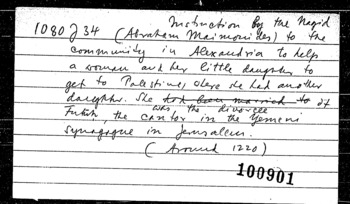 1080 J 34 Instruction by the Nagid
(Abraham Maimonides) to the
community in Alexandria to help
a woman and her little daughter to
get to Palestine, where she had another
daughter. She had been married to
was the divorcee of
Futūh, the cantor in the Yemeni
synagogue in Jerusalem.
(Around 1220)
100901